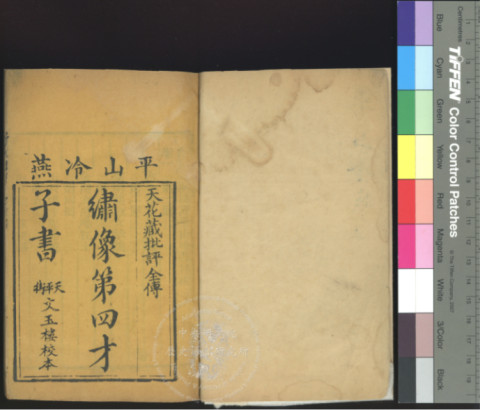 平山冷燕
天花藏批評全傳
繡像第四才
子書
天平街
文玉樓校本
Centimetres
TIFFEN Color Control Patches
© The Tiffen Company, 2007
Blue
Cyan
Green
Yellow
Red
Magenta
White
3/Color
Black